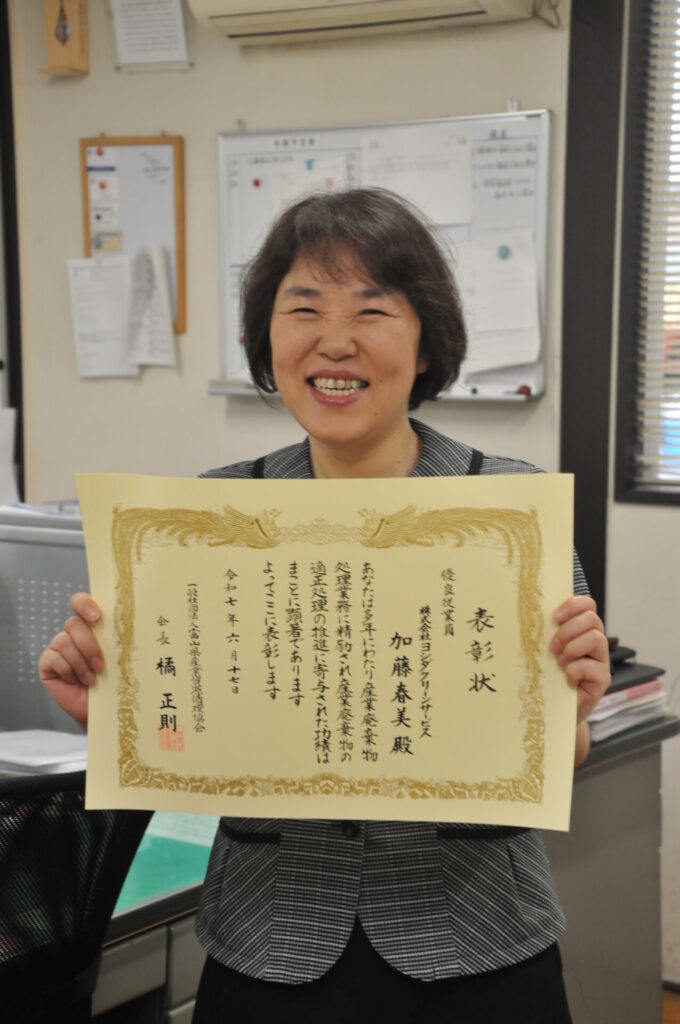 表彰状
優良従業員
株式会社ヨシダクリーンサービス
加藤春美殿
あなたは多年にわたり産業廃棄物
処理業務に精励され産業廃棄物の
適正処理の推進に寄与された功績は
まことに顕著であります
よってここに表彰します
令和七年六月十七日
一般社団法人富山県産業資源循環協会
会長 橘正則